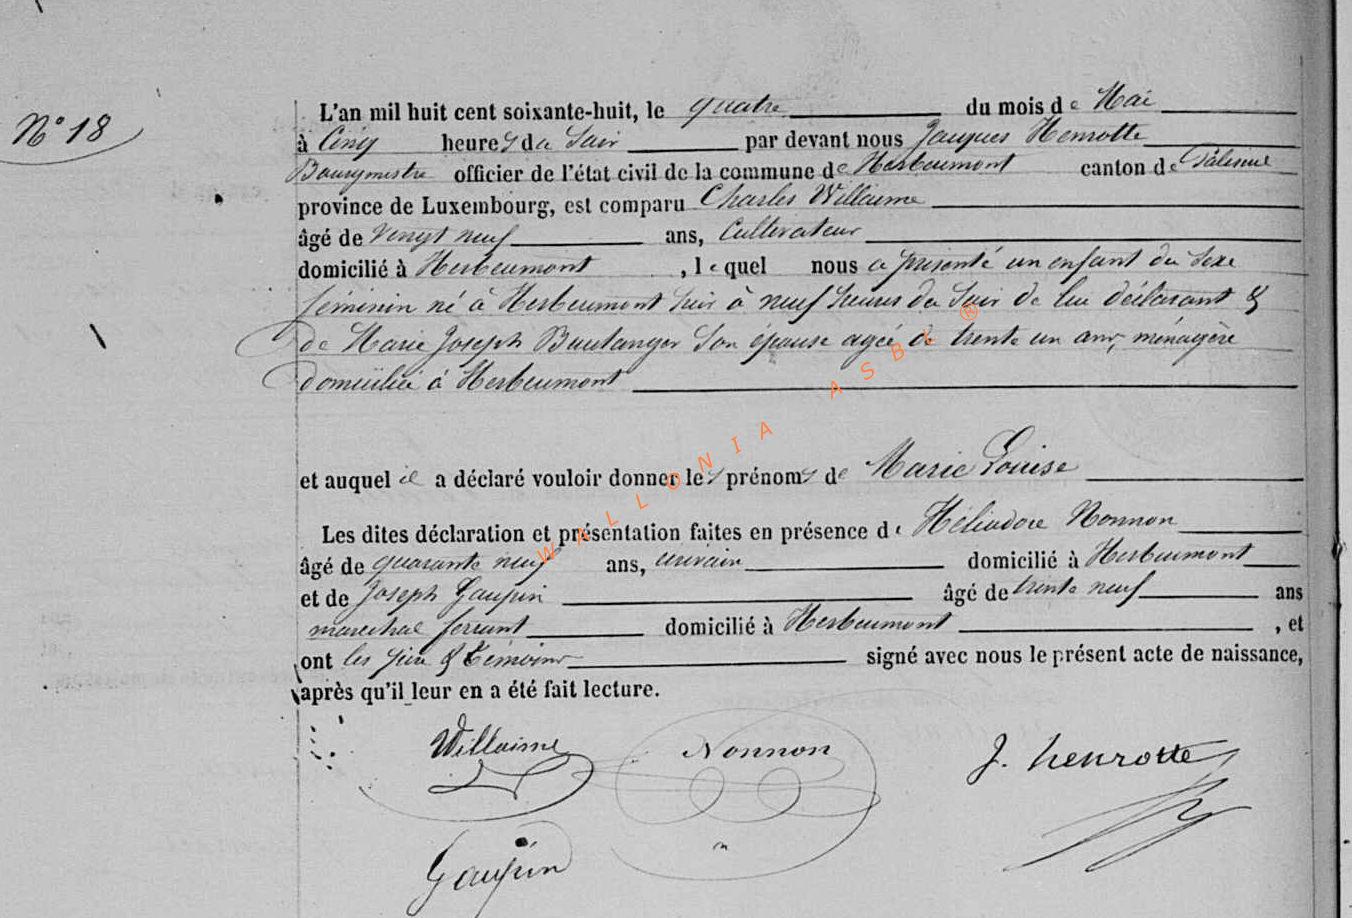 N° 18
L'an mil huit cent soixante-huit, le quatre du mois de Mai
à Cinq heures du Soir par devant nous Jacques Henrotte
Bourgmestre officier de l'état civil de la commune de Herbeumont canton de Paliseul
province de Luxembourg, est comparu Charles Willaime
âgé de vingt neuf ans, Cultivateur
domicilié à Herbeumont, lequel nous a présenté un enfant du sexe
féminin né à Herbeumont hier à neuf heures du Soir de lui déclarant &
de Marie Joseph Boulanger Son épouse agée de trente un ans, ménagère
domiciliée à Herbeumont
et auquel il a déclaré vouloir donner les prénoms de Marie Louise
Les dites déclaration et présentation faites en présence de Héliodore Nonnon
âgé de quarante neuf ans, domicilié à Herbeumont
et de Joseph Gaupin âgé de trente neuf ans
marechal ferrant domicilié à Herbeumont, et
ont les père & témoins signé avec nous le présent acte de naissance,
après qu'il leur en a été fait lecture.
Willaime Nonnon J. henrotte
Gaupin
WALLONIA ASBL ®